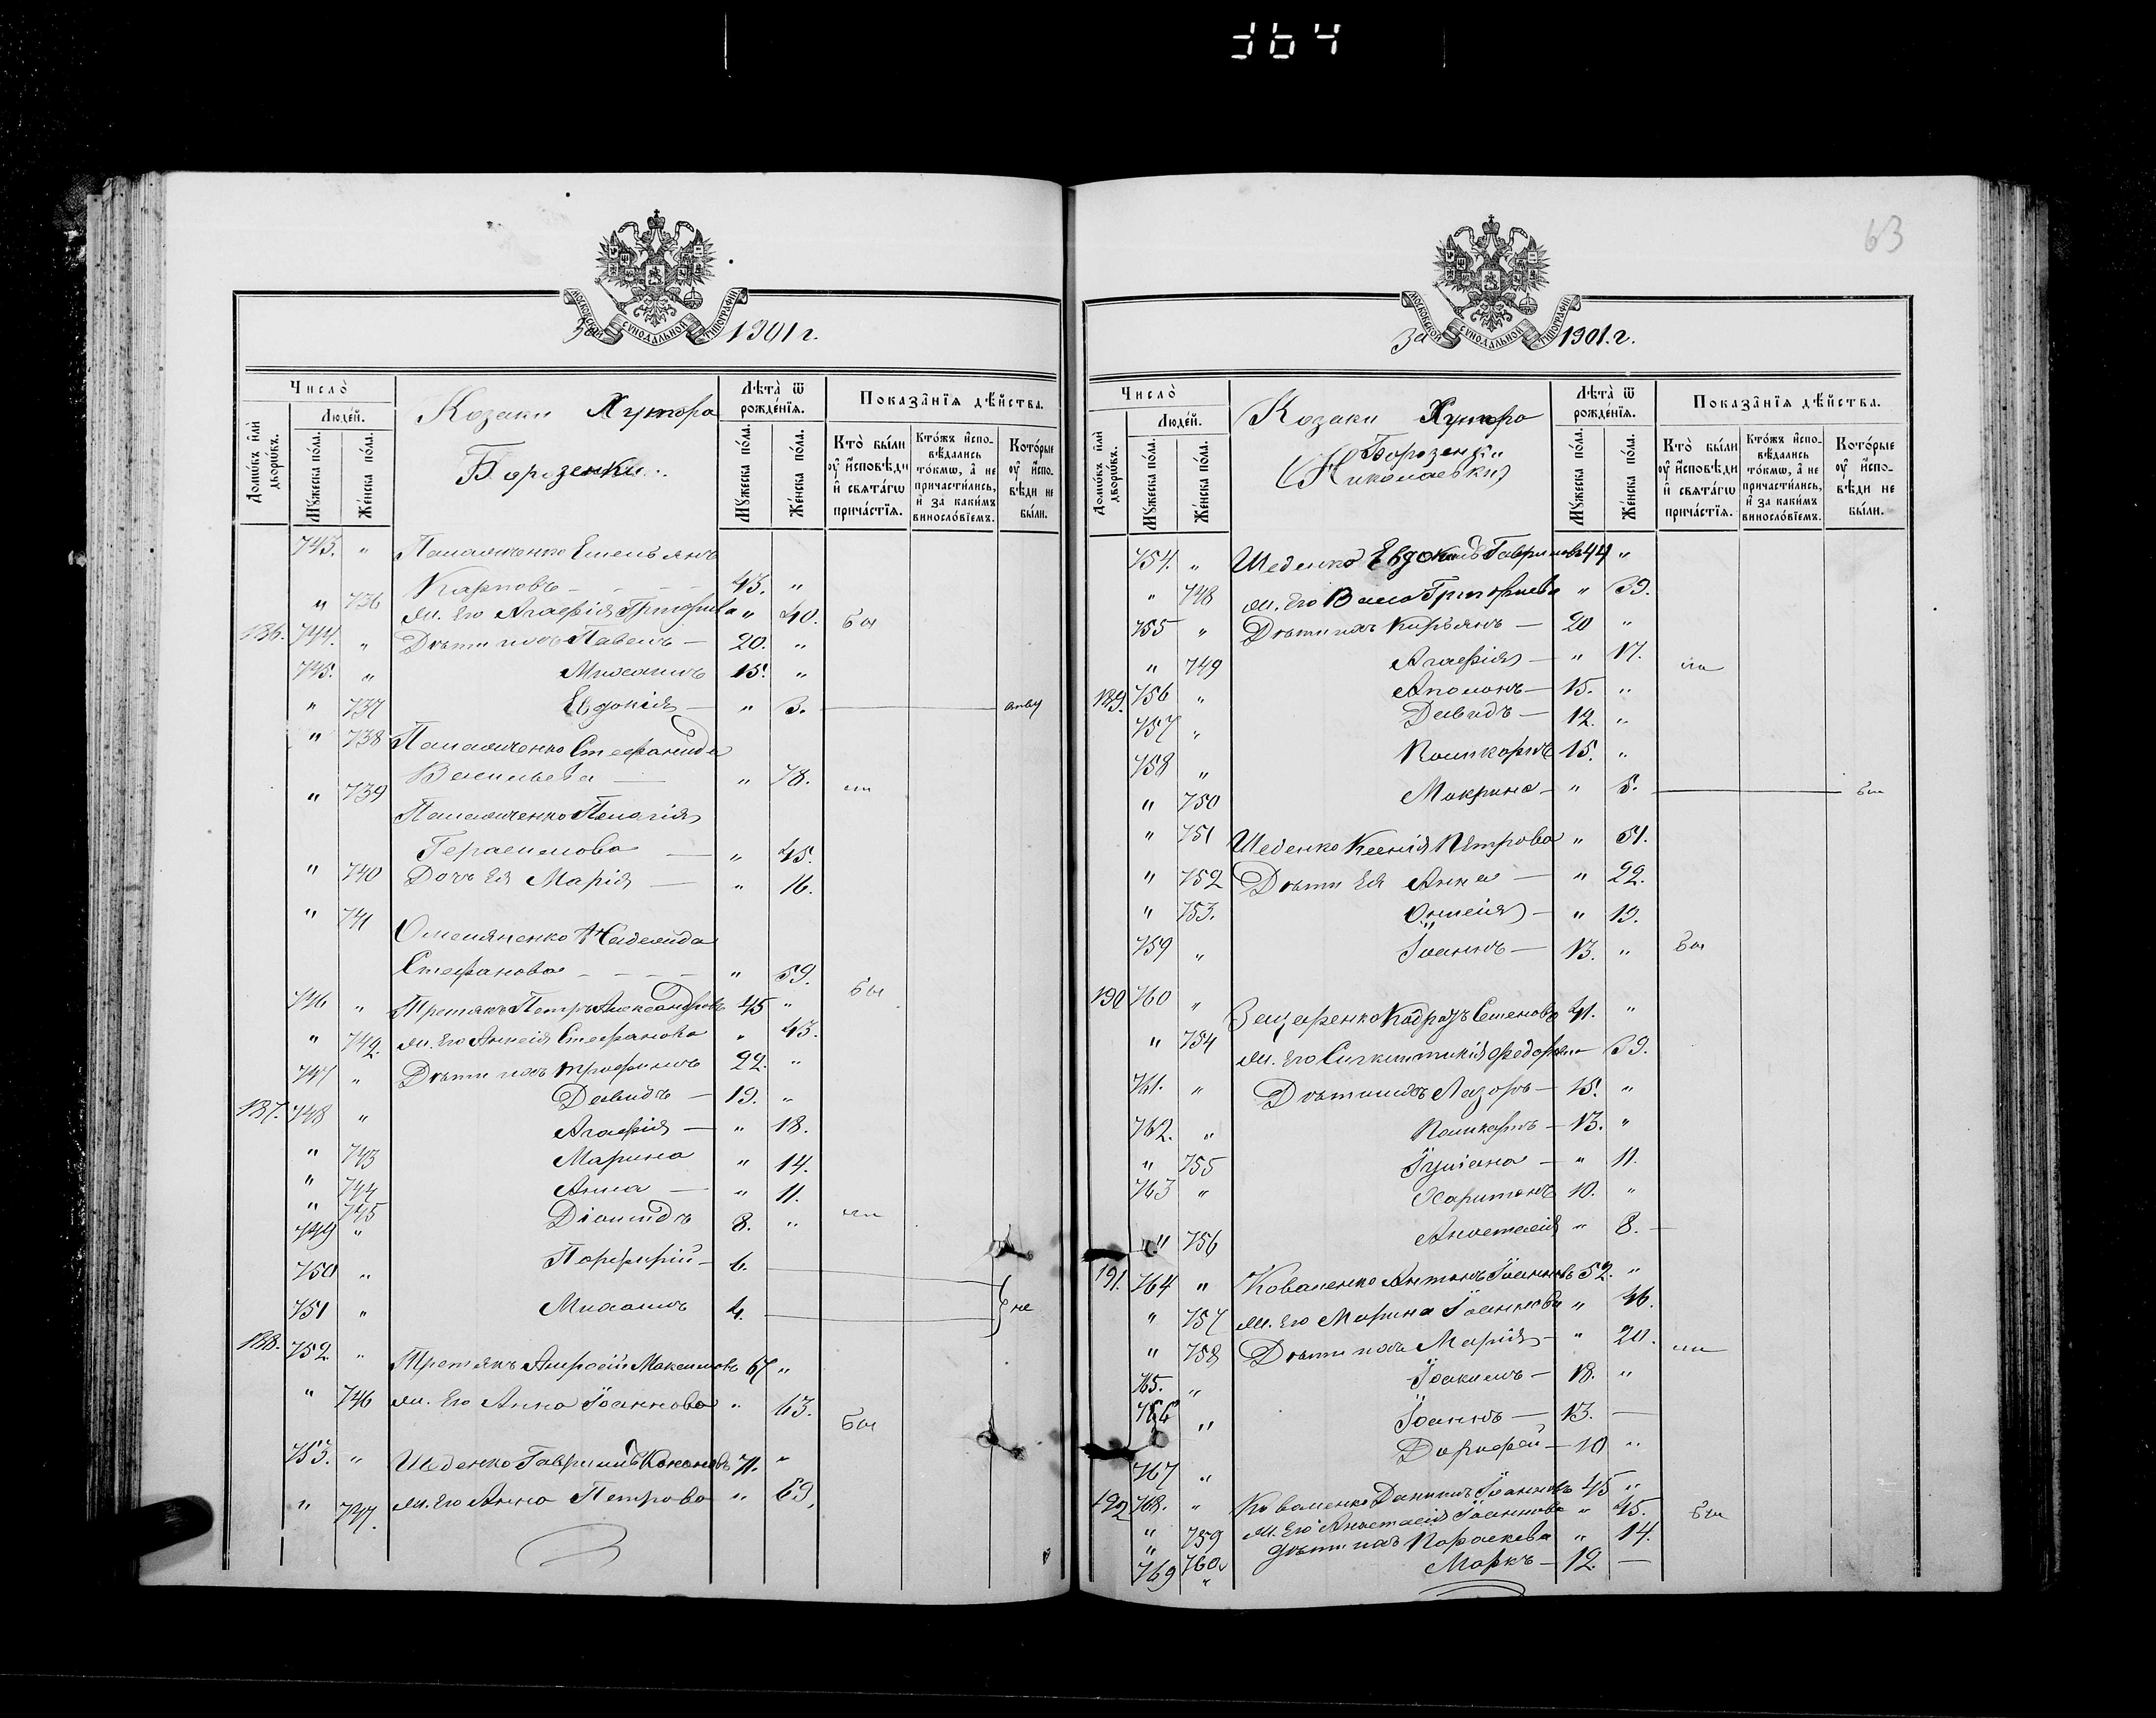 364
63
МОСКОВСКОЙ СУНОДАЛЬНОЙ ТИПОГРАФІИ
За 1901 г.
Число̀
Людей.
Домѡвъ и҆лѝ дворѡвъ.
Мꙋжеска по́ла.
Же́нска по́ла.
Козаки Хутора
Борзенки.
Лѣта̀ ѿ рожде́нїѧ.
Мꙋжеска по́ла.
Же́нска по́ла.
Показа̑нїѧ дѣ́йства.
Кто̀ бы́ли оу҆ и҆́сповѣди и҆ свѧта́гѡ прича́стїѧ.
Кто́жъ и҆спо-вѣдались то́кмѡ, а҆ не причасти́лись, и҆ за каки́мъ виносло́вїемъ.
Кото́рые оу҆ и҆́спо-вѣди не бы́ли.
743. " Панащенко Емельянъ
Карповъ 43. "
" 736 ж. Его Агафія Григорьева " 40. бы
186. 744. " Дѣти ихъ Павелъ 20. "
745. " Михаилъ 15. "
" 737 Евдокія " 3.
" 738 Панащенко Стефанида
Васильева " 78. ли
" 739 Панащенко Пелагія
Герасимова " 45.
" 740 Дочь Ея Марія " 16.
" 741 Омеляненко
Стефанова " 59.
746 " Третякъ Петръ Александровъ 45 " бы
" 742. ж. Его Анисія Стефанова " 43.
747 " Дѣти ихъ Трофимъ 22. "
187. 748 " Давидъ 19. "
" 743 Агафія " 18.
" 744 Марина " 14.
" 745 Анна " 11.
749 " Діомидъ 8. " ли
750 " Порфирій 6.
751 " Михаилъ 4. не
188. 752. " Третякъ Андрей Максимовъ 67 "
" 746 ж. Его Анна Іоаннова " 63. бы
753. " Шеденко Гавриилъ Кононовъ 71. "
" 747. ж. Его Анна Петрова " 69.
МОСКОВСКОЙ СУНОДАЛЬНОЙ ТИПОГРАФІИ
За 1901. г.
Число̀
Людей.
Домѡвъ и҆лѝ дворѡвъ.
Мꙋжеска по́ла.
Же́нска по́ла.
Козаки Хутора
Борозенки
(Николаевки)
Лѣта̀ ѿ рожде́нїѧ.
Мꙋжеска по́ла.
Же́нска по́ла.
Показа̑нїѧ дѣ́йства.
Кто̀ бы́ли оу҆ и҆́сповѣди и҆ свѧта́гѡ прича́стїѧ.
Кто́жъ и҆спо-вѣдались то́кмѡ, а҆ не причасти́лись, и҆ за каки́мъ виносло́вїемъ.
Кото́рые оу҆ и҆́спо-вѣди не бы́ли.
754. " Шеденко Евдокимъ Гавриловъ 44 "
" 748 ж. Его Васса Григорьева " 39.
755 " Дѣти ихъ Кирьянъ 20 "
" 749 Агафія " 17. ли
189. 756 " Аполонъ 15. "
757 " Давидъ 12. "
758 " Поликарпъ 15. "
" 750 Макрина " 5. бы
" 751 Шеденко Ксенія Петрова " 51.
" 752 Дѣти Ея Анна " 22.
" 753. " 19.
759 " Іоаннъ 13. " бы
190 760 " Кодратъ Семеновъ 41. "
" 754 ж. Его Синклитикія Федорова 39.
761. " Дѣти ихъ Лазорь 15. "
762. " Поликарпъ 13. "
" 755 Іуліана " 11.
763 " Харитонъ 10. "
" 756 Анастасія " 8.
191. 764 " Коваленко Антонъ Іоанновъ 52. "
" 757 ж. Его Марина Іоаннова " 46.
" 758 Дѣти ихъ Марія " 20. ли
765. " Іоакимъ 18. "
766 " Іоаннъ 13.
767 " Дорофей 10 "
192 768. " Коваленко Даниилъ Іоанновъ 45 "
" 759 ж. Его Анастасія Іоаннова " 45. бы
" 760. дѣти ихъ Параскева " 14.
769 " Маркъ 12.